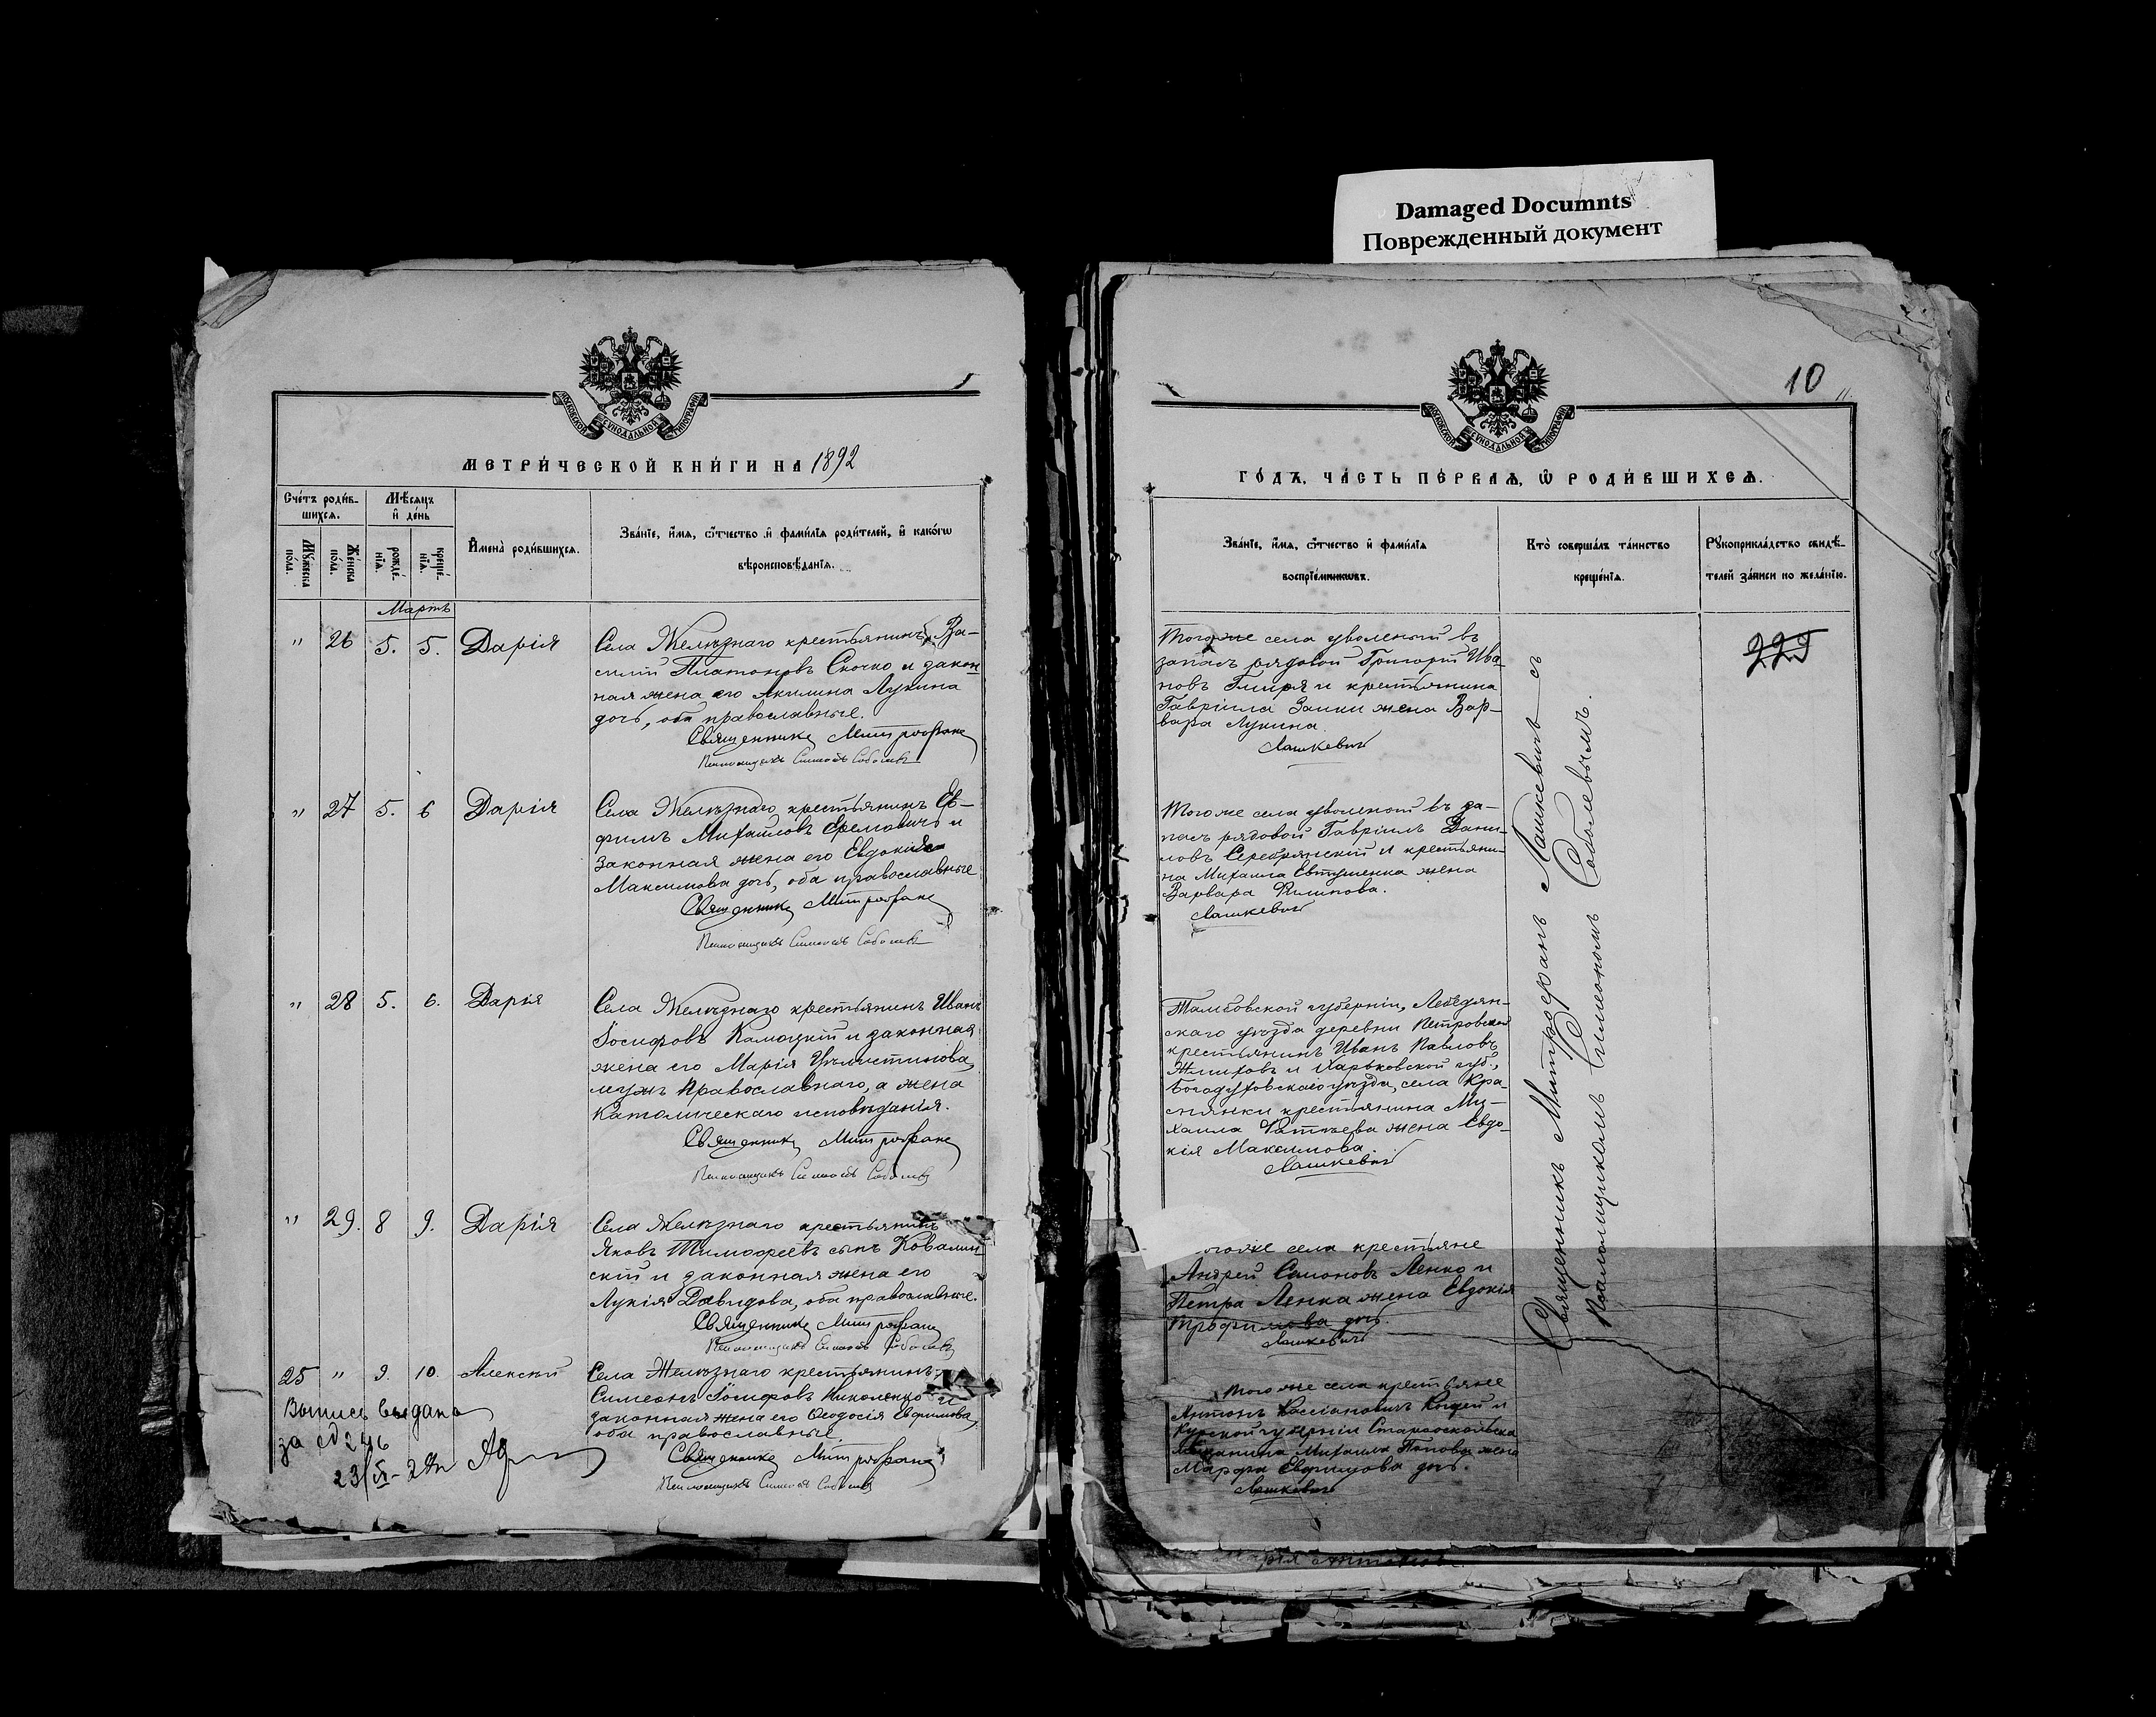 Damaged Documnts
Поврежденный документ
МОСКОВСКОЙ СѴНОДАЛЬНОЙ ТИПОГРАФІИ
МЕТРИ́ЧЕСКОЙ КНИ́ГИ НА 1892
Сче́тъ роди́в-
шихсѧ.
Мѣ́сѧцъ
и҆ де́нь
Мꙋ́жеска
по́ла.
Же́нска
по́ла.
рожде́-
нїѧ.
креще́-
нїѧ.
И҆мена̀ роди́вшихсѧ.
Зва́нїе, и҆́мѧ, ѻ҆́тчество и҆ фами́лїѧ роди́телей, и҆ како́гѡ
вѣроисповѣ́данїѧ.
Мартъ
" 26 5. 5. Дарія
Села Желѣзнаго крестьянинъ Ва-
силій Платоновъ Скочко и закон-
ная жена его Акилина Лукина
дочь, оба православные.
Священникъ Митрофанъ
Псаломщикъ Симеонъ Соболевъ
" 27 5. 6 Дарія
Села Желѣзнаго крестьянинъ Ев-
фимъ Михаиловъ Еремовичъ и
законная жена его Евдокія
Максимова дочь, оба православные
Священникъ Митрофанъ
Псаломщикъ Симеонъ Соболевъ
" 28 5. 6. Дарія
Села Желѣзнаго крестьянинъ Иванъ
Іосифовъ Камоцкій и законная
жена его Марія
мужъ Православнаго, а жена
Католическаго исповѣданія.
Священникъ Митрофанъ
Псаломщикъ Симеонъ Соболевъ
" 29. 8 9. Дарія
Села Желѣзнаго крестьянинъ
Яковъ Тимофеевъ сынъ Ковалин-
скій и законная жена его
Лукія Давидова, оба православные.
Священникъ Митрофанъ
Псаломщикъ Симеонъ Соболевъ
25 " 9. 10. Алексій
Села Желѣзнаго крестьянинъ
Симеонъ Іосифовъ Николенко и
законная жена его Ѳеодосія Евфимова,
оба православные.
Священникъ Митрофанъ
Псаломщикъ Симеонъ Соболевъ
Выпись выдана
за № 246
10
МОСКОВСКОЙ СѴНОДАЛЬНОЙ ТИПОГРАФІИ
ГО́ДЪ, ЧА́СТЬ ПЕ́РВАѦ, Ѡ҆ РОДИ́ВШИХСѦ.
Зва́нїе, и҆́мѧ, ѻ҆́тчество и҆ фами́лїѧ
воспрїе́мниковъ.
Кто̀ соверша́лъ та́инство
креще́нїѧ.
Рꙋкоприкла́дство свидѣ́-
телей за́писи по жела́нїю.
Тогоже села уволеный въ
запасъ рядовой Григорій Ива-
новъ Гмиря и крестьянина
Гавріила Заики жена Вар-
вара Лукина.
Лашкевичъ
Тогоже села уволеный въ за-
пасъ рядовой Гавріилъ Дани-
ловъ Серебрянскій и крестьяни-
на Михаила Евтушенка жена
Варвара Филипова.
Лашкевичъ
Тамбовской губерніи, Лебедян-
скаго уѣзда деревни Петровской
крестьянинъ Иванъ Павловъ
Жмиховъ и Харьковской губ.,
Богодуховскаго уѣзда, села Кра-
снянки крестьянина Ми-
хаила жена Евдо-
кія Максимова.
Лашкевичъ
тогоже села крестьяне
Андрей Самоновъ Ленко и
Петра Ленка жена Евдокія
Трофимова дочь.
Лашкевичъ
Того же села крестьяне
Антонъ Кассіановичъ и
Курской губерніи Старооскольска
мѣщанина Михаила Попова жена
Марфа Евфимова дочь.
Лашкевичъ
Священникъ Митрофанъ Лашкевичъ съ
Псаломщикомъ Симеономъ Соболевымъ.